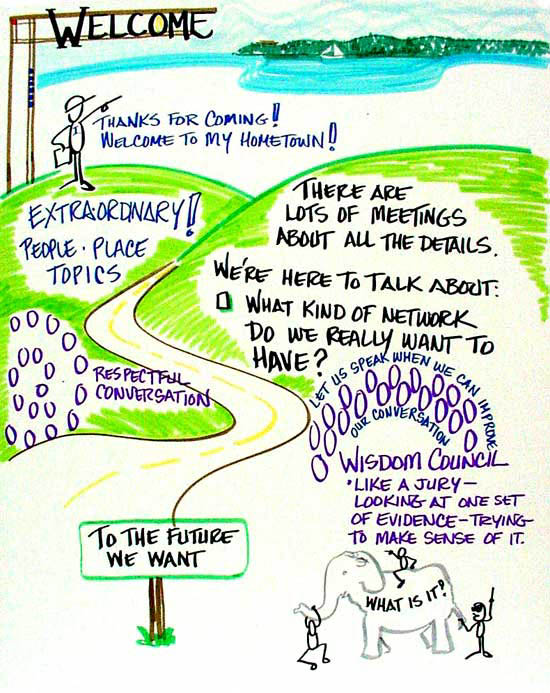 WELCOME
THANKS FOR COMING!
WELCOME TO MY HOMETOWN!
EXTRAORDINARY!
PEOPLE · PLACE
TOPICS
THERE ARE
LOTS OF MEETINGS
ABOUT ALL THE DETAILS.
WE'RE HERE TO TALK ABOUT:
WHAT KIND OF NETWORK
DO WE REALLY WANT TO
HAVE?
RESPECTFUL
CONVERSATION
LET US SPEAK WHEN WE CAN IMPROVE
OUR CONVERSATION
WISDOM COUNCIL
· LIKE A JURY—
LOOKING AT ONE SET
OF EVIDENCE—TRYING
TO MAKE SENSE OF IT.
TO THE FUTURE
WE WANT
WHAT IS IT?